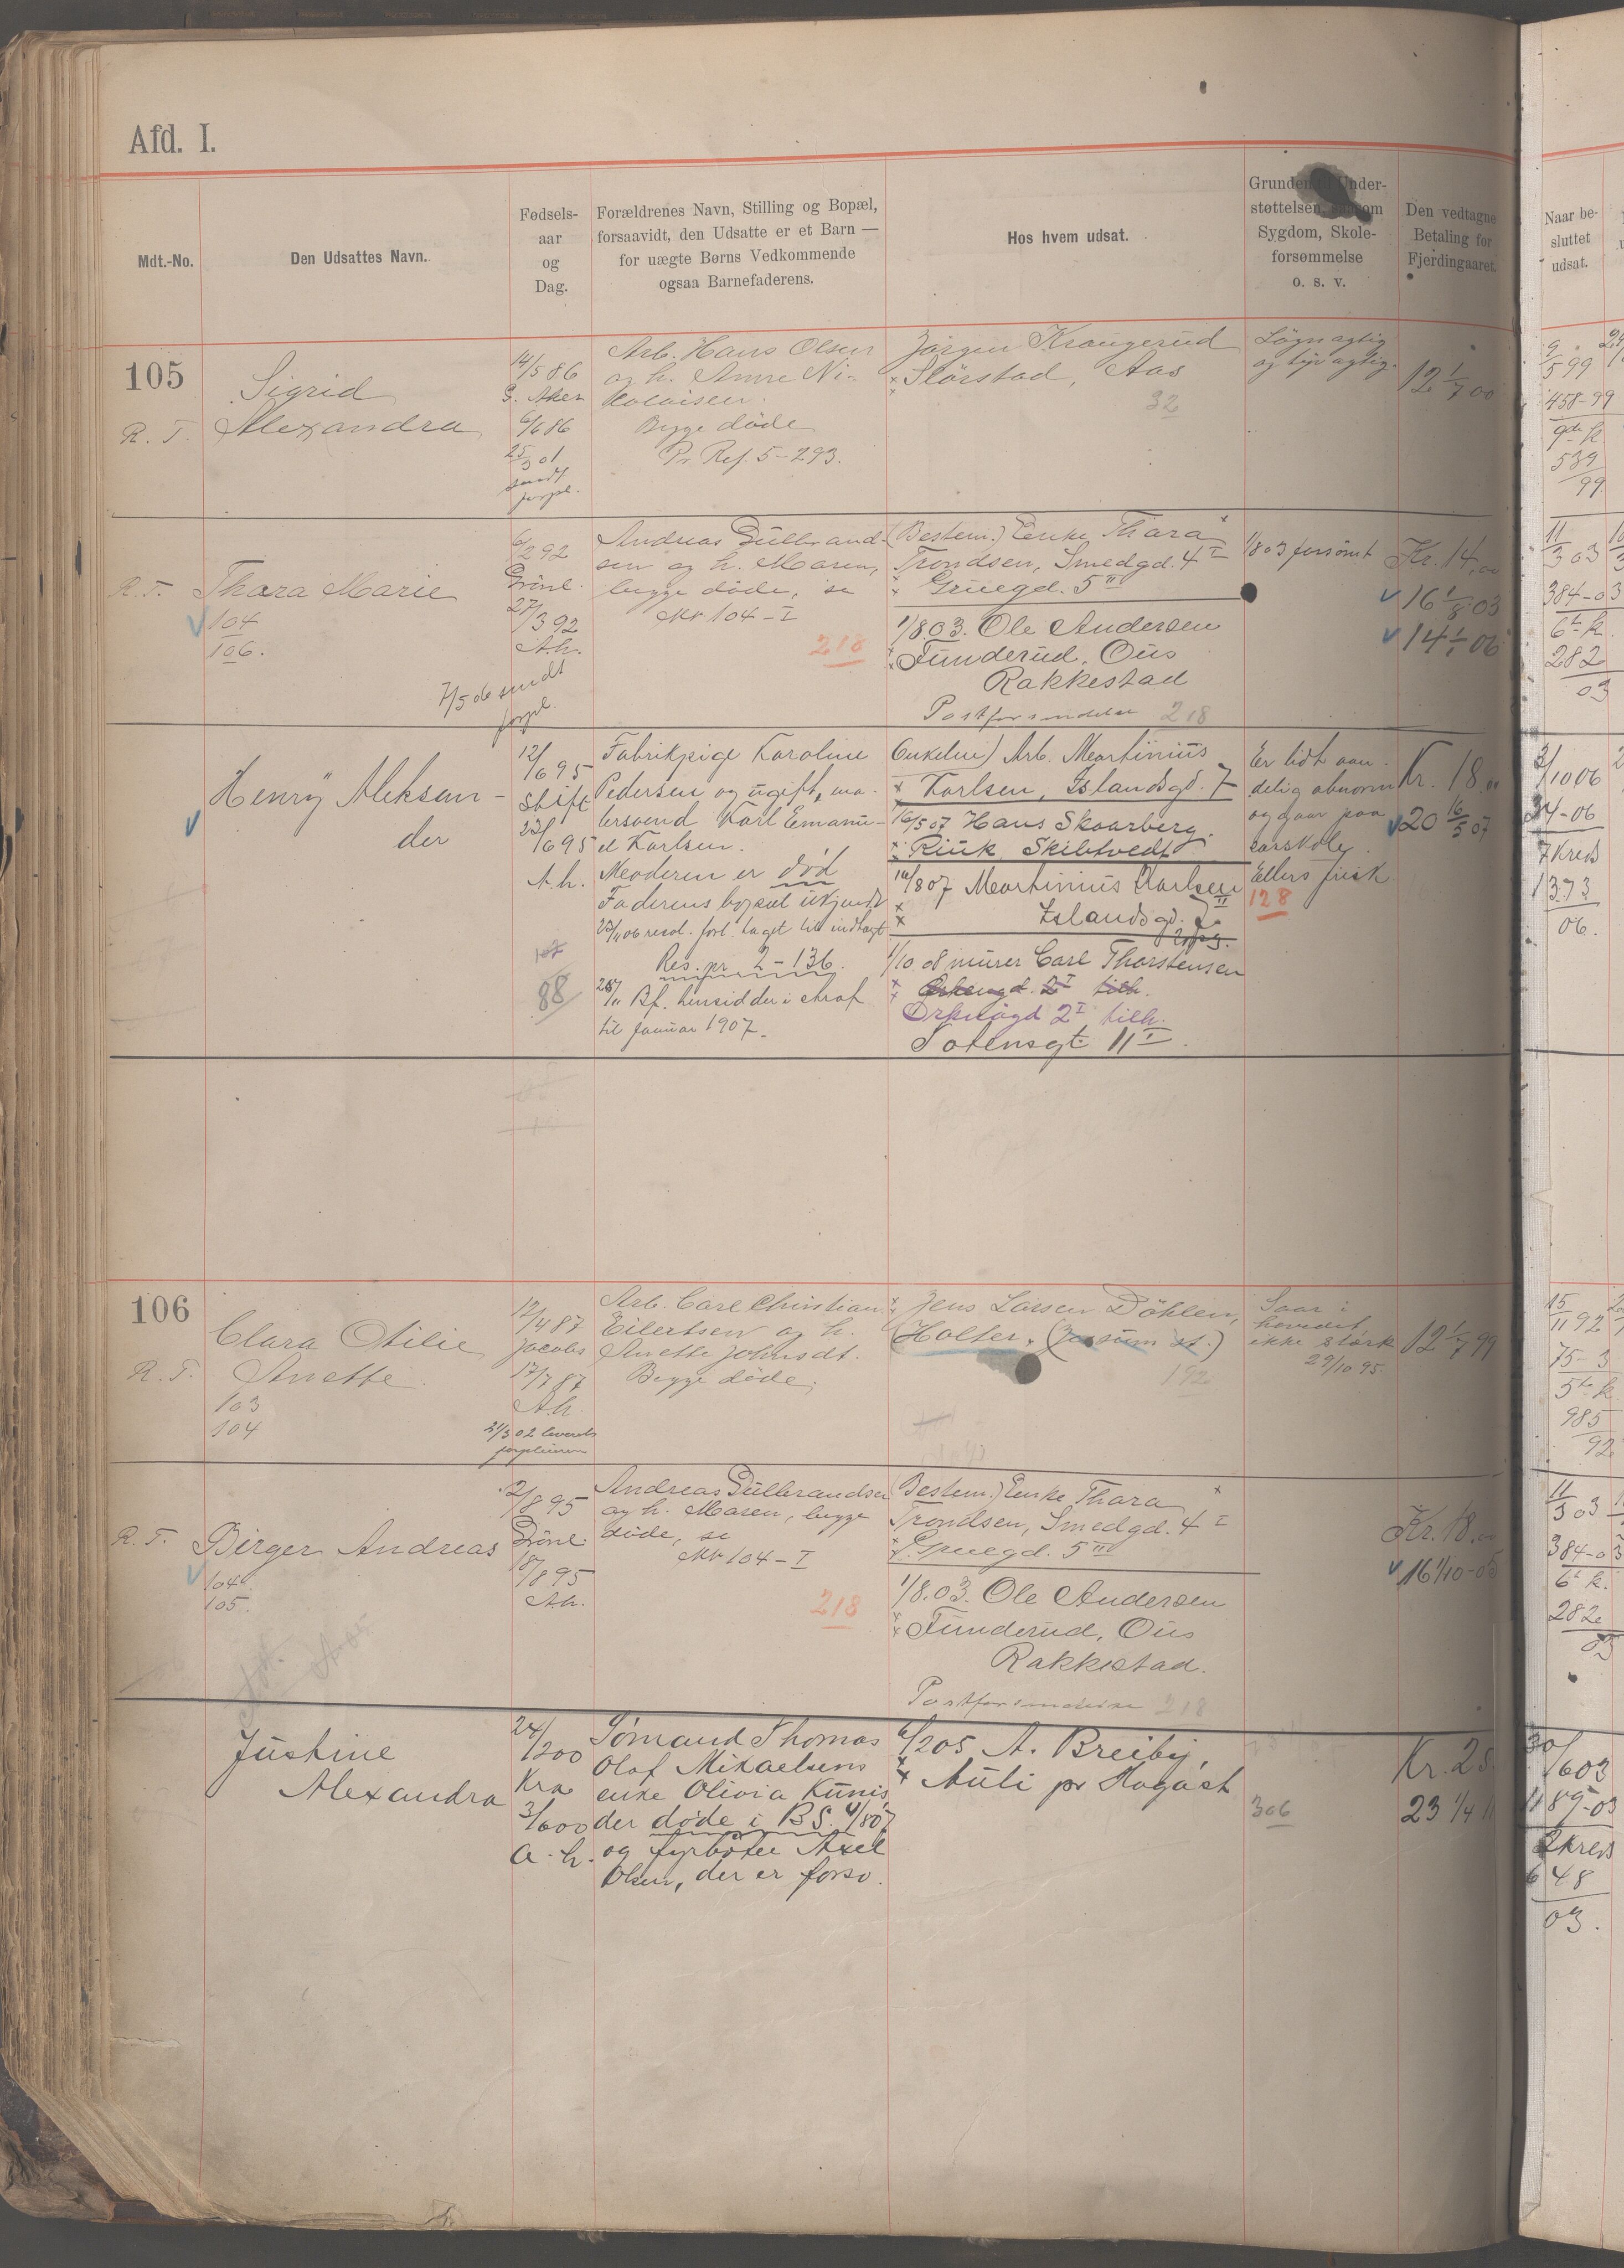 Afd. I.
Mdt.-No.
Den Udsattes Navn.
Fødsels-
aar
og
Dag.
Forældrenes Navn, Stilling og Bopæl,
forsaavidt, den Udsatte er et Barn —
for uægte Børns Vedkommende
ogsaa Barnefaderens.
Hos hvem udsat.
Grunden Under-
støttelsen,
Sygdom, Skole-
forsømmelse
o. s. v.
Den vedtagne
Betaling for
Fjerdingaaret.
Naar be-
sluttet
udsat.
105
R. T.
Sigrid
Alexandra
14/5 86
G. Aker
6/6 86
25/3 01
sendt
forpl.
Arb. Hans Olsen
og h. Anne Ni-
kolaisen.
Begge døde
Pr. Ref. 5-293.
Jørgen Kraugerud
Slørstad, Aas
32
Løgnagtig
og tyvagtig.
12 1/7 00
9/5 99
458-99
9de k
539
99
R. T.
Thora Marie
104
106.
6/2 92
Grönl.
27/3 92
A.h.
7/5 06 sendt
forpl.
Andreas Gulbrand-
sen og h. Maren,
begge døde, se
Mt 104-I
218
(Bestem.) Enke Thara
Trondsen, Smedgd. 4 I
Gruegd. 5 III
1/8.03. Ole Andersen
Funderud, Ous
Rakkestad
Postforsendelse 218
1/8 03 forsømt
Kr. 14,00
16 1/8 03
14 1/1 06
11/3 03
384-03
6te k.
282
03
Henry Aleksan-
der
12/6 95
Skift
23/6 95
A.h.
107
88
Fabrikpige Karoline
Pedersen og ugift, ma-
lersvend Karl Emanu-
el Karlsen.
Moderen er død
Faderens bopæl ukjendt
23/11 06 resol. forl. taget til indtægt
Res. pr. 2-136.
28/11 Bf. hensidder i straf
til januar 1907.
Onkelen) Arb. Martinius
Karlsen, Islandsgd. 7
16/5 07 Hans Skaarberg.
Riuk, Skibtvedt
16/8 07 Martinius Karlsen
Islandsgd. 7 II
1/10 08 murer Carl Thorstensen
Orknögd 2 I tilh.
Sofensgt. 11 I.
Er lidt aan-
delig abnorm
og gaar paa
særskole
Ellers frisk
128
Kr. 18.00
20 16/5 07
3/10 06
34-06
7 Kreds
1373
06.
106
R. T.
Clara Otilie
Anette.
103
104
12/4 87
Jacobs
17/7 87
A.h.
21/3 02 leveret
forpleieren
Arb. Carl Christian
Eilertsen og h.
Anette Johnsdt.
Begge døde.
Jens Larsen Döhlen,
Holter.
192
Saar i
hovedet,
ikke stærk
29/10 95.
12 1/7 99
15/11 92
75-3
5te k
985
92
R. T.
Birger Andreas
104.
105.
2/8 95
Grönl.
18/8 95
A.h.
Andreas Gulbrandsen
og h. Maren, begge
døde, se
Mt 104-I
218
Bestem.) Enke Thara
Trondsen, Smedgd. 4 I
Gruegd. 5 III
1/8.03. Ole Andersen
Funderud, Ous
Rakkestad.
Postforsendelse 218
Kr. 18.00
16 1/10-05
11/3 03
384-03
6te k.
282
03
Justine
Alexandra
24/2 00
Kra
3/6 00
a.h.
Sømand Thomas
Olaf Mikaelsens
enke Olivia Kunis,
der døde i BS. 4/8 07
og fyrbøter Axel
Olsen, der er forsv.
6/2 05 A. Breiby,
Auli pr Hogást
306
Kr. 25
23 1/4 11
30/6 03
1189-03
2 kreds
648
03.